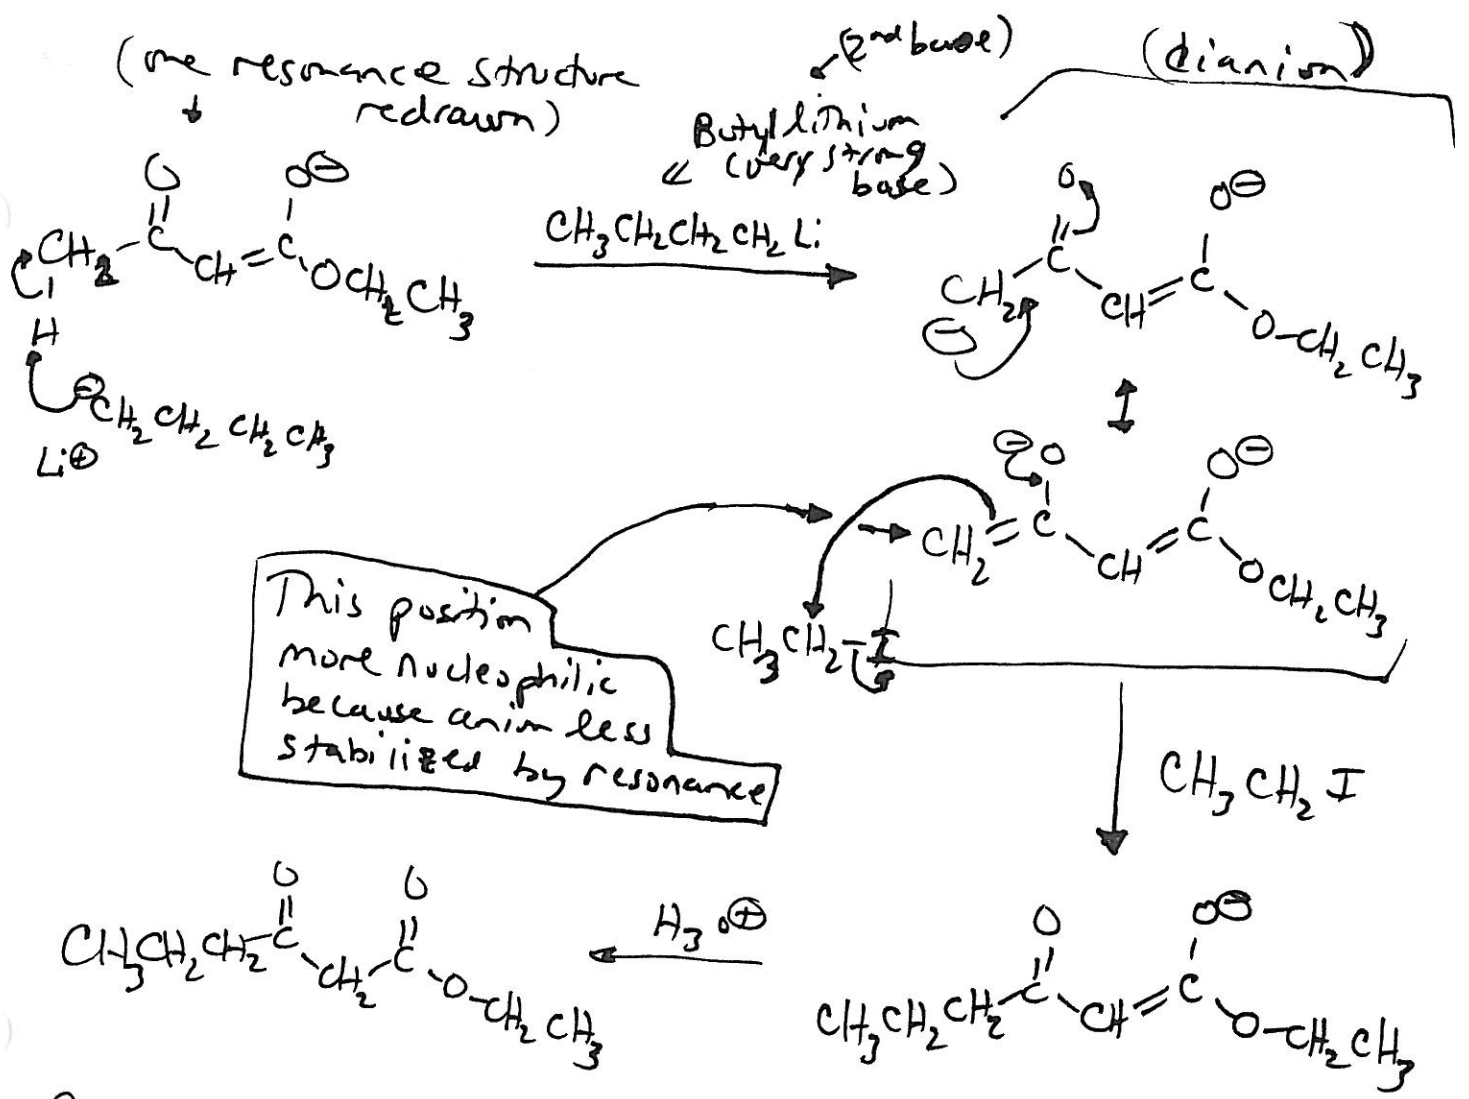 (one resonance structure
redrawn)
(2nd base)
(dianion)
Butyllithium
(very strong
base)
O
O⊖
CH2
C
CH
C
OCH2CH3
H
⊖CH2CH2CH2CH3
Li⊕
CH3CH2CH2CH2Li
O
O⊖
CH2
⊖
C
CH
C
O-CH2CH3
⊖O
O⊖
CH2=C
CH
C
OCH2CH3
CH3CH2-I
This position
more nucleophilic
because anion less
stabilized by resonance
CH3CH2I
O
O⊖
CH3CH2CH2
C
CH
C
O-CH2CH3
H3O⊕
O
O
CH3CH2CH2
C
CH2
C
O-CH2CH3